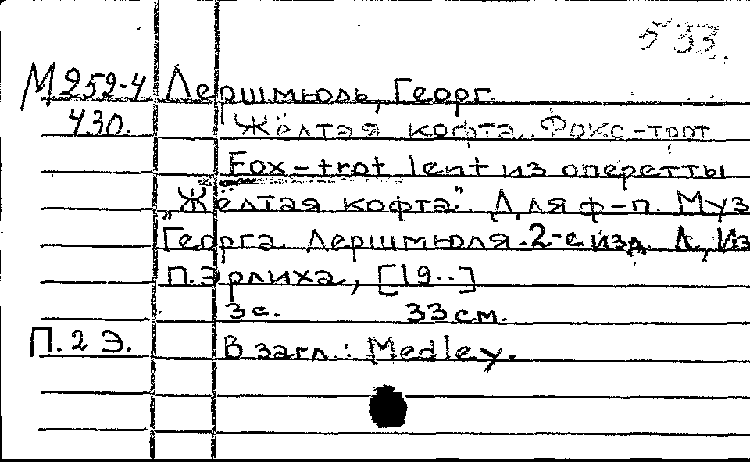 533.
М252-4 Лершмюль, Георг.
430. Жёлтая кофта. Фокс-трот
Fox-trot lent из оперетты
"Жёлтая кофта". Для ф-п. Муз
Георга Лершмюля. 2-е изд. Л, Из
П. Эрлиха, [19..]
3 с. 33 см.
П. 2 Э. В загл.: Medley.